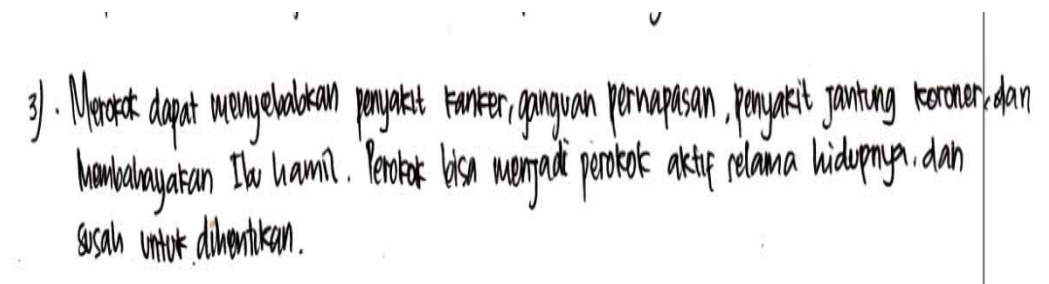 3). Merokok dapat menyebabkan penyakit kanker, ganguan pernapasan, penyakit jantung koroner, dan
membahayakan Ibu hamil. Perokok bisa menjadi perokok aktif selama hidupnya, dan
susah untuk dihentikan.